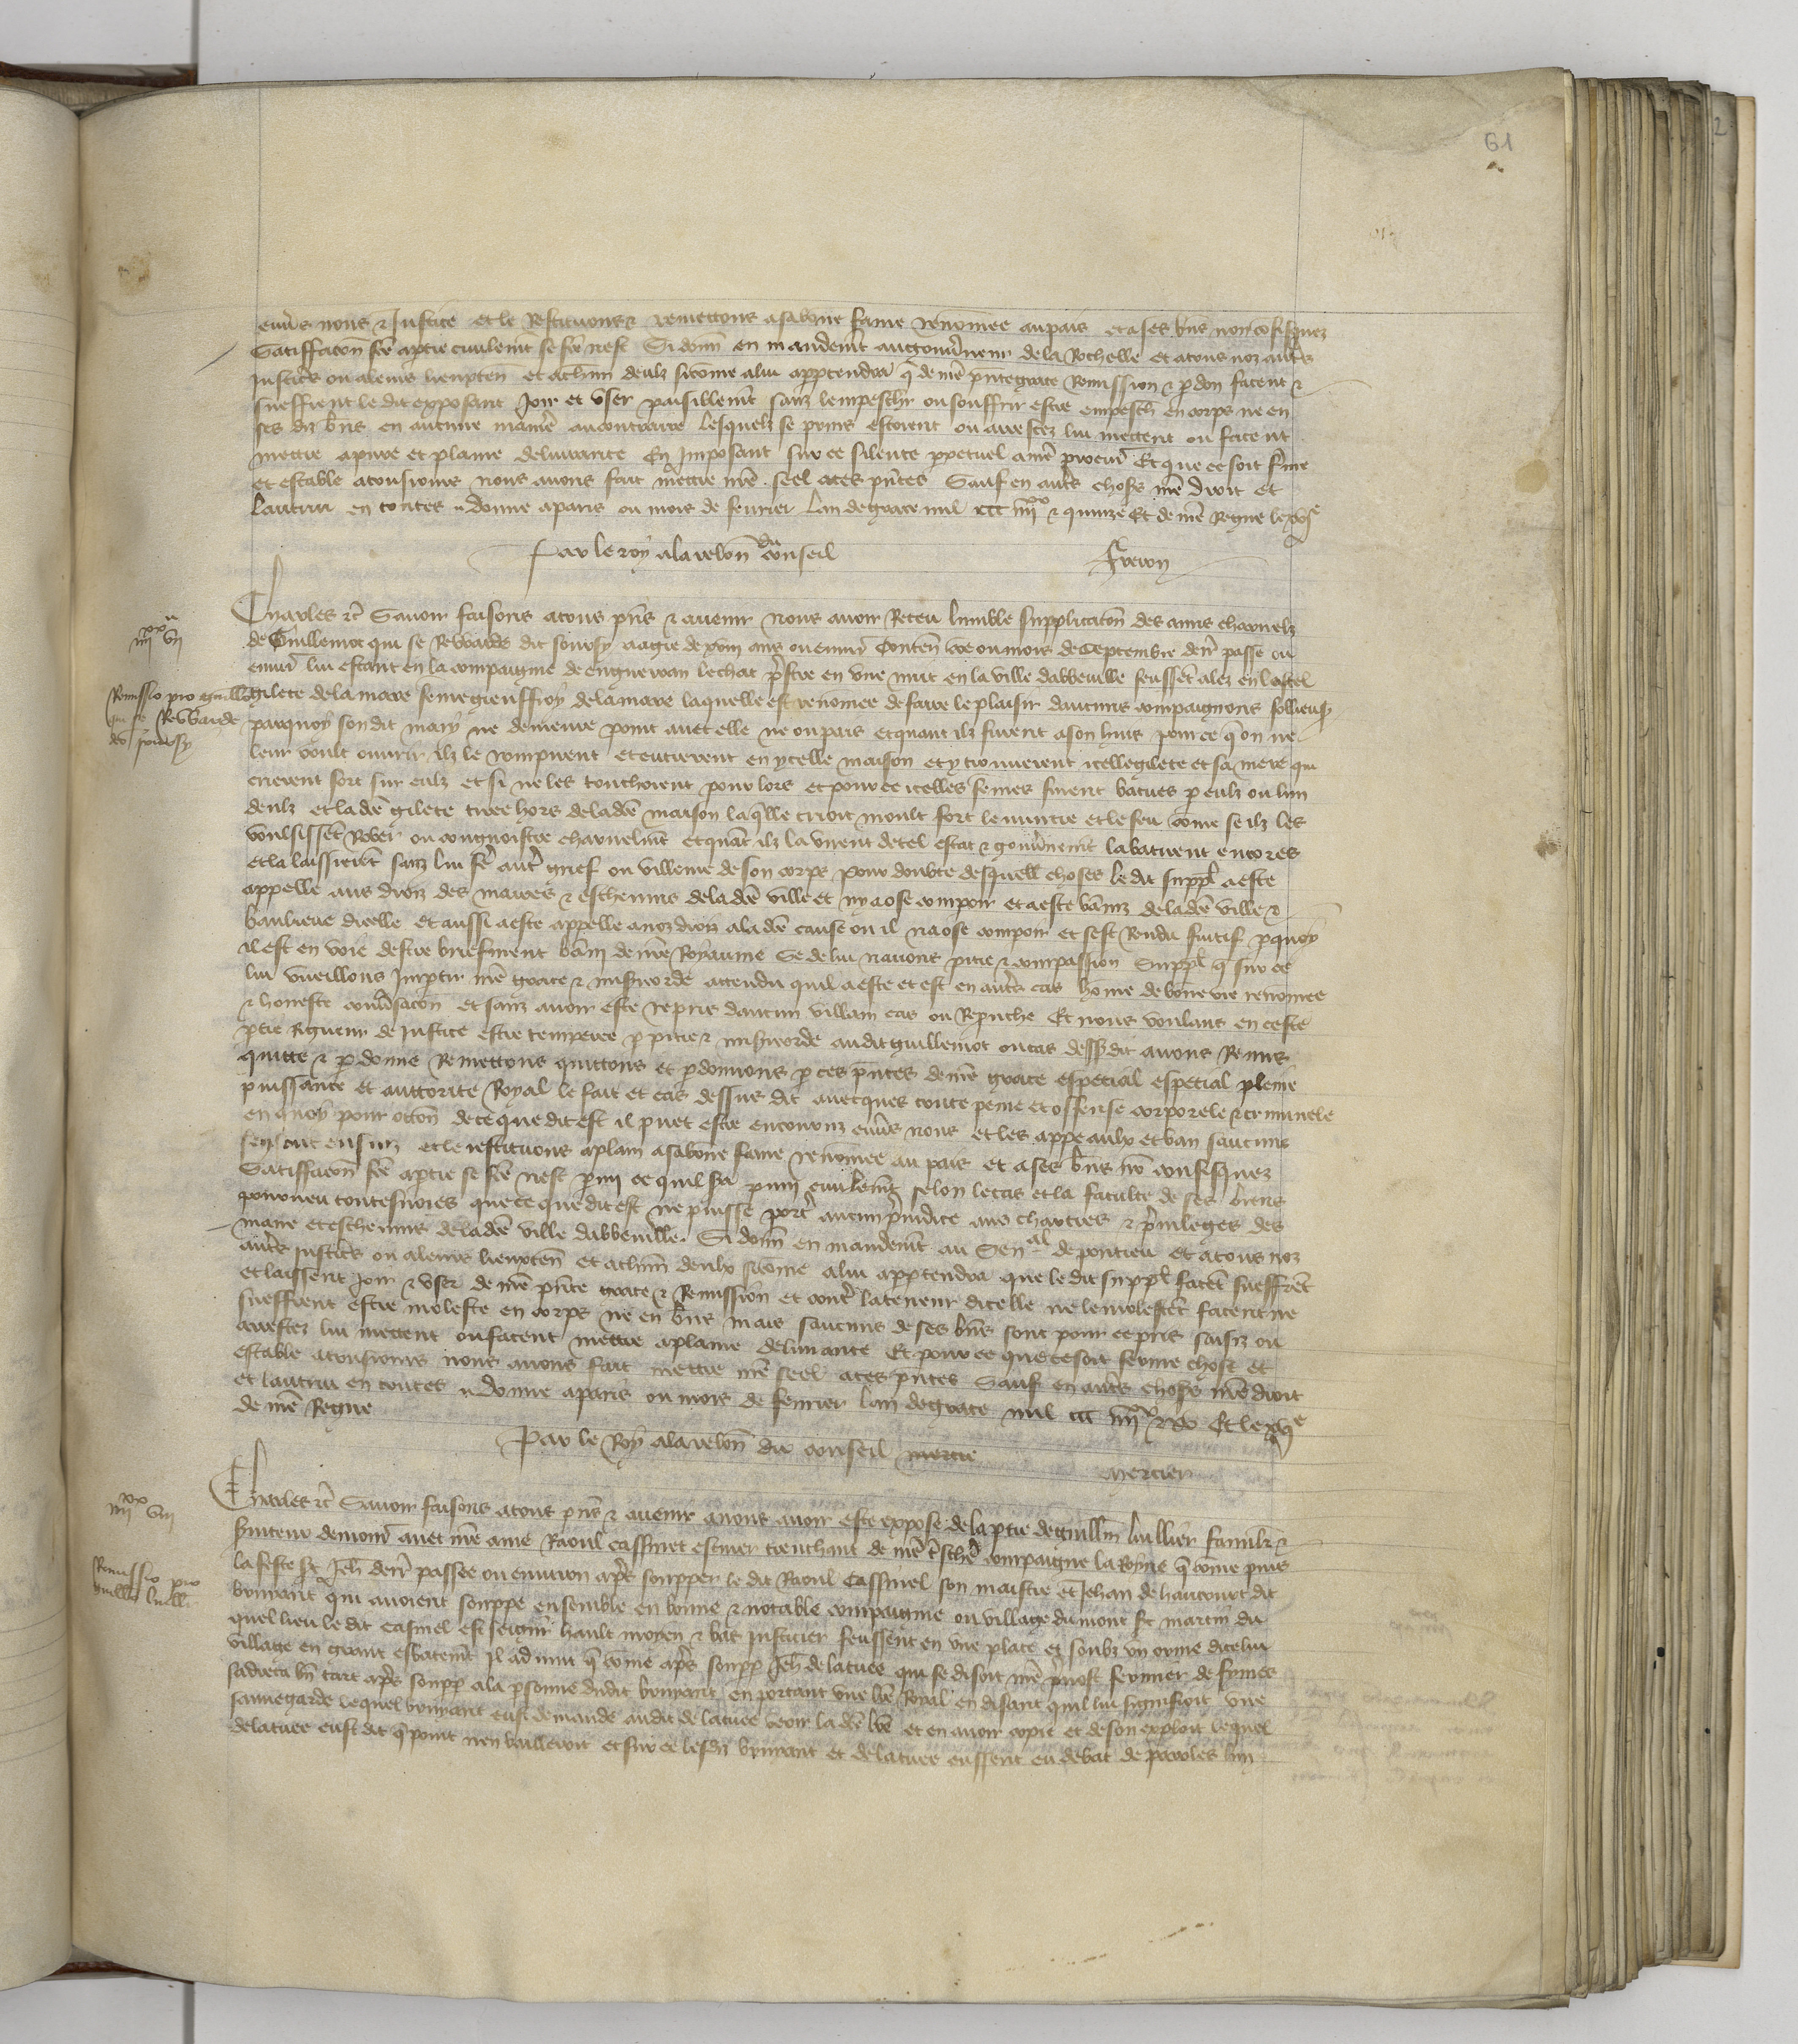 61
envers nous & Justice et le Restituons & remettons a sa bone fame renomee au pais et a ses biens non cofisquez
Satiffacon fce a ptie civilemt se fce nest Si donn en mandemt au gouvneur de la Rochelle et a tous noz autres
Justicrs ou a leurs lieuxten et a chun deulz sicome a lui apptendra q de nre pnte grace Remission & pdon facent &
sueffrent le dit exposant Joir et user paisiblemt sanz lempeschr ou souffrir estre empesch en corps ne en
ses diz biens en aucune manie au contraire lesquelz se prins estoient ou arrestez lui mettent ou facent
mettre a pure et plaine delivrance En Imposant sur ce silence ppetuel a nre procur Et que ce soit ferme
et estable a tousiours nous avons fait mettre nre seel a ces pntes Sauf en autrs choses nre droit et
lautrui en toutes Donne a paris ou mois de fevrier lan de grace mil ccc iiii xx & quinze Et de nre Regne le xvje
Par le roy a la relon du conseil Freron
iiii xx vii
Charles &c Savoir faisons a tous pns & avenir nous avoir Receu lumble supplicacon des amis charnelz
de Guillemot qui se Rewarde dit souvsy aagie de xviij ans ou environ Conten ou mois de Septembre derr passe ou
Remissio pro guillo qui se Rewarde dco souvsy
envir lui estant en la compaignie de enguerran le chat prestre en une nuit en la ville dabbeville feussent alez en lostel
gilete de la mare feme gieuffroy de la mare laquelle est renomee de faire le plaisir daucuns compaignons
parquoy son dit mary ne demeure point avec elle ne ou pais et quant ilz furent a son huis pour ce q on ne
leur voult ouvrir ilz le rompirent et entrerent en ycelle maison et y trouverent icelle gilete et sa mere qui
crierent fort sur eulz et si ne les touchoient pour lors et pour ce icelles femes furent batues p eulz ou lun
deulz et la dce gilete tiree hors de la dce maison laqlle crioit moult fort le murtre et le feu come se ilz les
voulsissent Rober ou congnoistre charnelmt et quant ilz la virent de tel estat & gouvnemt la batirent encores
et la laissierent sanz lui fe autr grief ou villenie de son corps pour doubte desquell choses le dit suppl a este
appelle aus droiz des maires & eschevins de la dce ville et ny a ose compoir et a este baniz de la dce ville &
banlieue dicelle et aussi a este appelle a noz droiz a la dce cause ou il na ose compoir et sest Rendu fuitif pquoy
il est en voie destre briefment bani de nre Royaume Se de lui navons pitie & compassion Suppl q sur ce
lui vueillons Imptir nre grace & misericorde attendu quil a este et est en autrs cas home de bone vie renomee
& honeste convsacon et sanz avoir este repris daucun villain cas ou Repruche Et nous voulans en ceste
ptie Rigueur de Justice estre temperee p pitie & misericorde audit guillemot ou cas dessusdit avons Remis
quitte & pdonne Remettons quittons et pdonnons p ces pntes de nre grace especial especial pleine
puissance et auctorite Royal le fait et cas dessus dit avecques toute peine et offense corporele & criminele
en quoy pour occon de ce que dit est il puet estre encouruz envs nous et les appeaulx et ban saucuns
sen sont ensuiz et le restituons a plain a sa bone fame renomee au pais et a ses biens no confisquez
Satisfacon fce a ptie se fce nest pmi ce quil sa puni civilemt selon le cas et la faculte de ses biens
pourveu toutesvoies que ce que dit est ne puisse portr aucun prejudice aus chartres & privileges des
maire et eschevins de la dce ville dabbeville. Si donn en mandemt au Sen al de pontieu et a tous noz
autrs justicrs ou a leurs lieuxten et a chun deulx sicome a lui apptendra que le dit suppl facent sueffrent
et laissent joir & user de nre pnte grace & Remission et contre la teneur dicelle ne le molestent facent ne
sueffrent estre moleste en corps ne en biens mais saucuns de ses biens sont pour ce pris saisiz ou
arrestez lui mettent ou facent mettre a plaine delivrance Et pour ce que ce soit ferme chose et
estable a tousiours nous avons fait mettre nre seel a ces pntes Sauf en autrs choses nre droit
et lautrui en toutes Donne a paris ou mois de fevrier lan de grace mil ccc iiii xx & xv Et le xvje
de nre Regne
Par le Roy a la relon du conseil mercie Mercier
iiii xx viii
Charles &c Savoir faisons a tous pns & avenir a nous avoir este expose de la ptie de guillm luillier familir &
Remissio pro guillo luilli
serviteur demour avec nre ame Raoul cassinel escuier trenchant de nre tresche compaigne la Royne q come puis
la feste St Jeh derr passee ou environ aprs soupper le dit Raoul Cassinel son maistre et Jehan de haucourt dit
bruyant qui avoient souppe ensemble en bonne & notable compaignie ou village du mont st martin du
quel lieu le dit casinel est seignr hault moyen & bas Justicier feussent en une place et soubz un orme dicelui
village en grant esbatemt Il advint q come aprs soupp Jeh de latuee qui se disoit nre prevost fermier de fymes
sadreca bn tart aprs soupp a la psonne dudit bruyant en portant une lre Royal en disant quil lui signifioit une
sauvegarde lequel bruyant eust demande audit de latuee veoir la dce lre et en avoir copie et de son exploit lequel
de latuee eust dit q point nen bailleroit et sur ce lesdiz bruyant et de latuee eussent eu debat de paroles lun